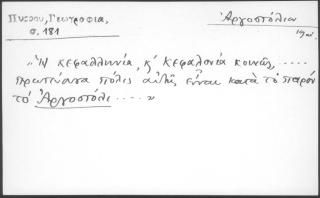 Πύρρου, Γεωγραφία,
σ. 181
Ἀργοστόλιον
„Ἡ Κεφαλληνία, κ' Κεφαλονία κοινῶς, .....
πρωτεύουσα πόλις αὐτῆς εἶναι κατὰ τὸ παρὸν
τὸ Ἀργοστόλι ..... "